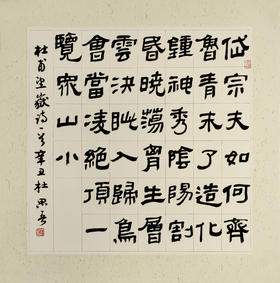 岱宗夫如何齊
魯青未了造化
鍾神秀陰陽割
昏曉蕩胷生層
雲決眦入歸鳥
會當凌絕頂一
覽眾山小
杜甫望嶽詩一首辛丑杜